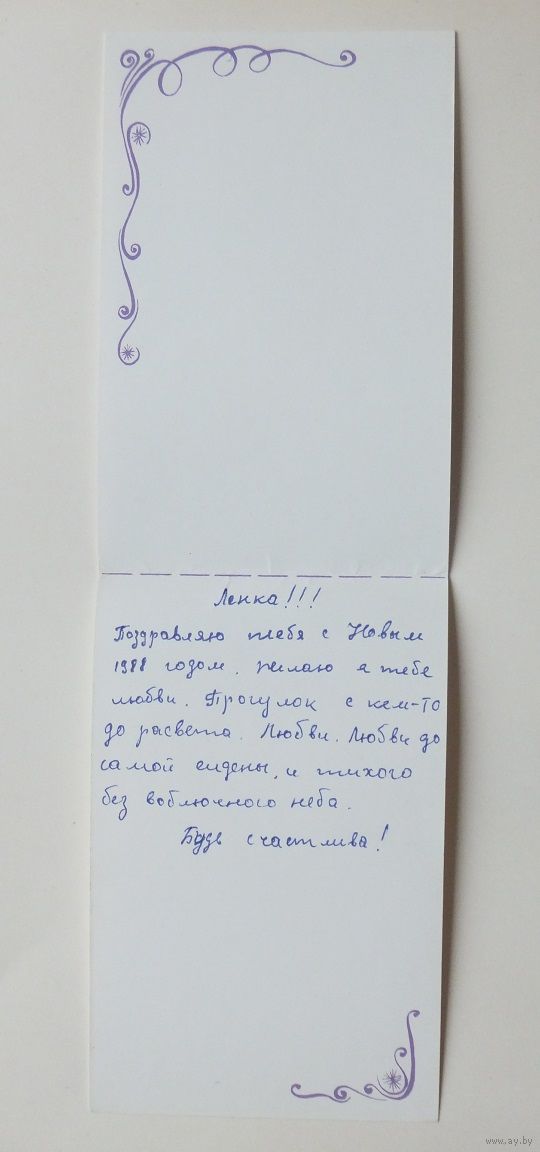 Ленка!!!
Поздравляю тебя с Новым
1988 годом. желаю я тебе
любви. Прогулок с кем-то
до расвета. Любви. Любви до
самой сидены, и тихого
без воблючного неба.
Будь счастлива!
www.ay.by